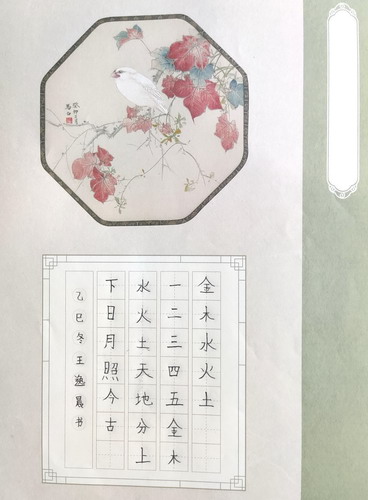 金木水火土
一二三四五金木
水火土天地分上
下日月照今古
乙巳冬王逸晨书